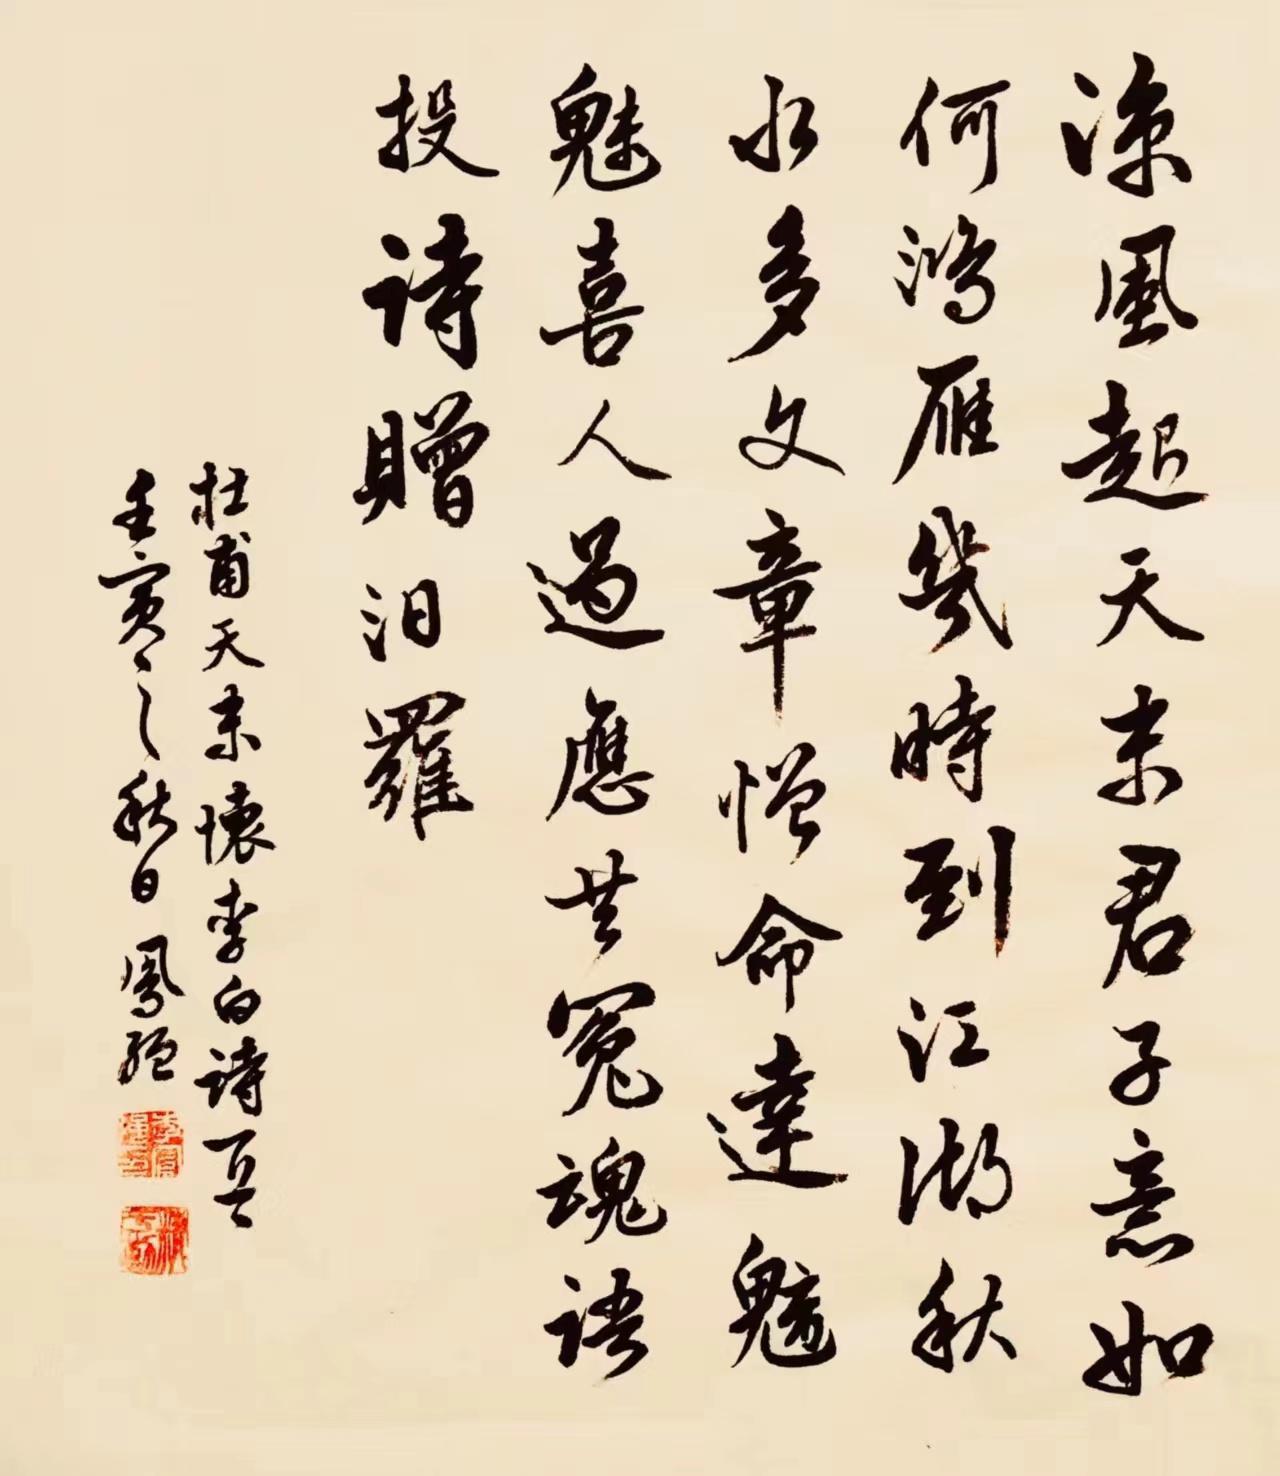 涼風起天末君子意如
何鴻雁幾時到江湖秋
水多文章憎命達魑
魅喜人過應共冤魂語
投詩贈汨羅
杜甫天末懷李白詩一首
壬寅之秋日鳳